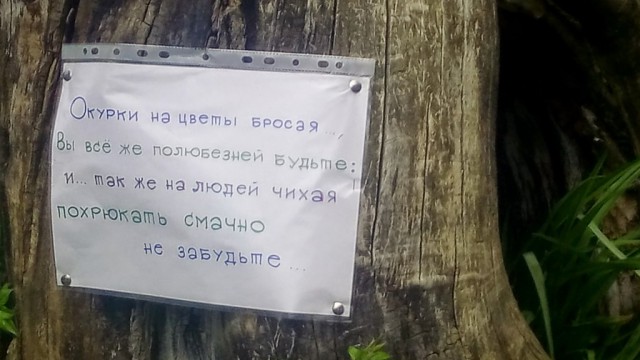 Окурки на цветы бросая...,
Вы всё же полюбезней будьте:
и... так же на людей чихая
похрюкать смачно
не забудьте...